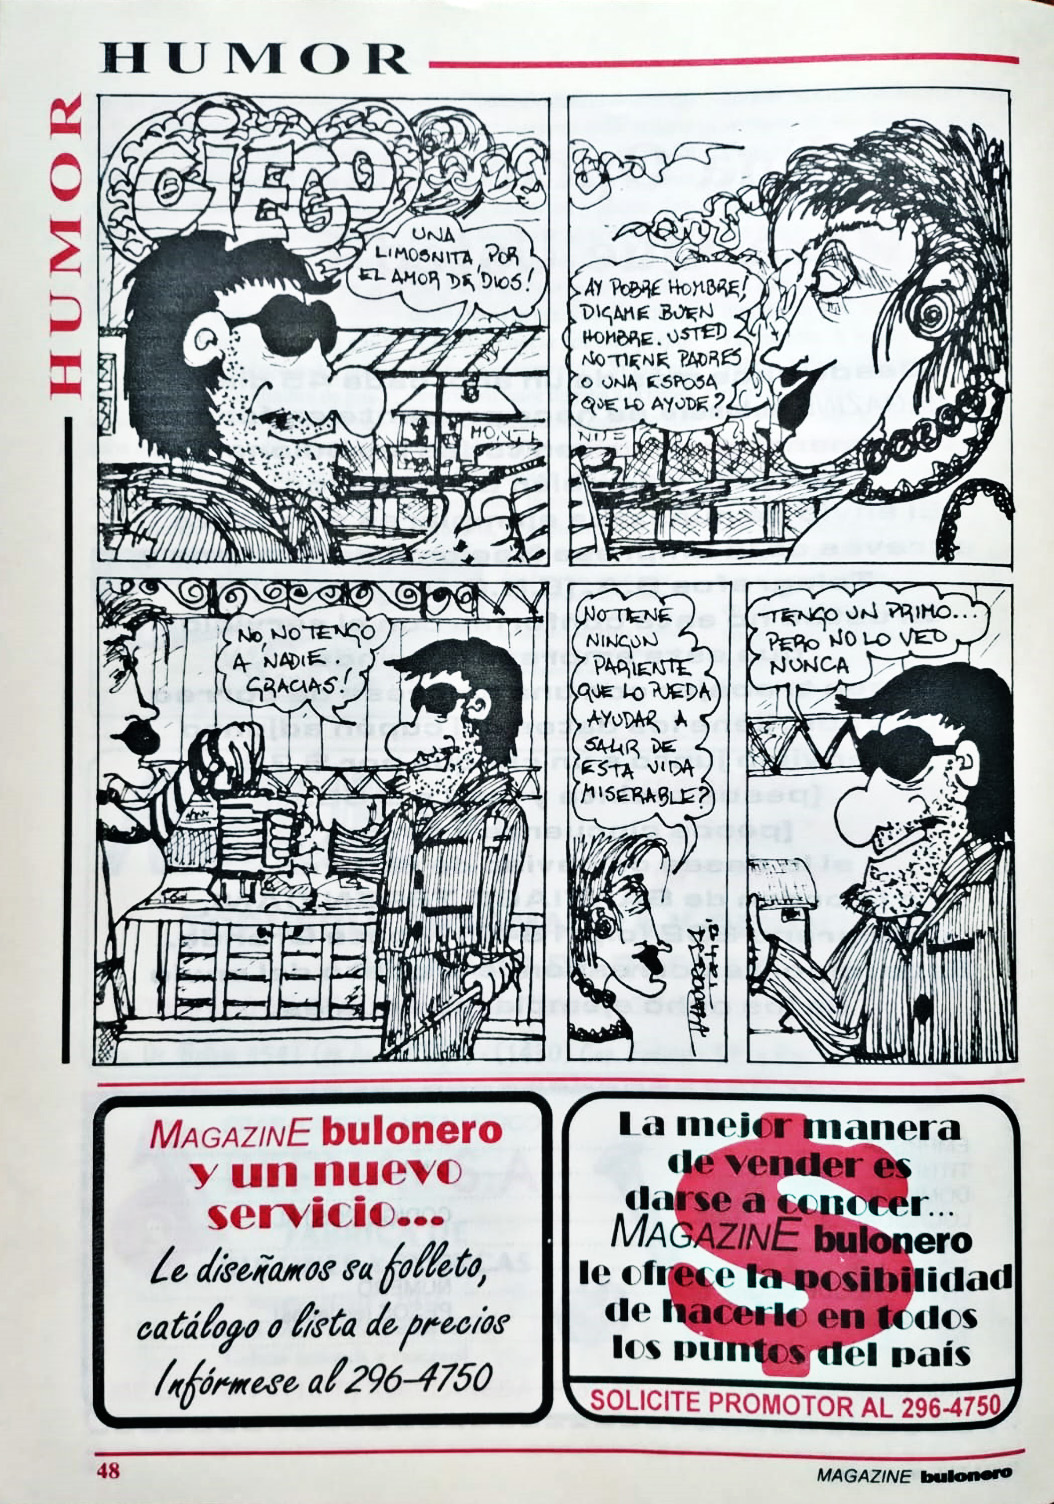 HUMOR
HUMOR
CIEGO
UNA
LIMOSNITA, POR
EL AMOR DE DIOS!
AY POBRE HOMBRE!
DIGAME BUEN
HOMBRE. USTED
NO TIENE PADRES
O UNA ESPOSA
QUE LO AYUDE?
NO, NO TENGO
A NADIE.
GRACIAS!
NO TIENE
NINGUN
PARIENTE
QUE LO PUEDA
AYUDAR A
SALIR DE
ESTA VIDA
MISERABLE?
TENGO UN PRIMO...
PERO NO LO VEO
NUNCA
MAGAZINE bulonero
y un nuevo
servicio...
Le diseñamos su folleto,
catálogo o lista de precios
Infórmese al 296-4750
La mejor manera
de vender es
darse a conocer...
MAGAZINE bulonero
le ofrece la posibilidad
de hacerlo en todos
los puntos del país
SOLICITE PROMOTOR AL 296-4750
48
MAGAZINE bulonero